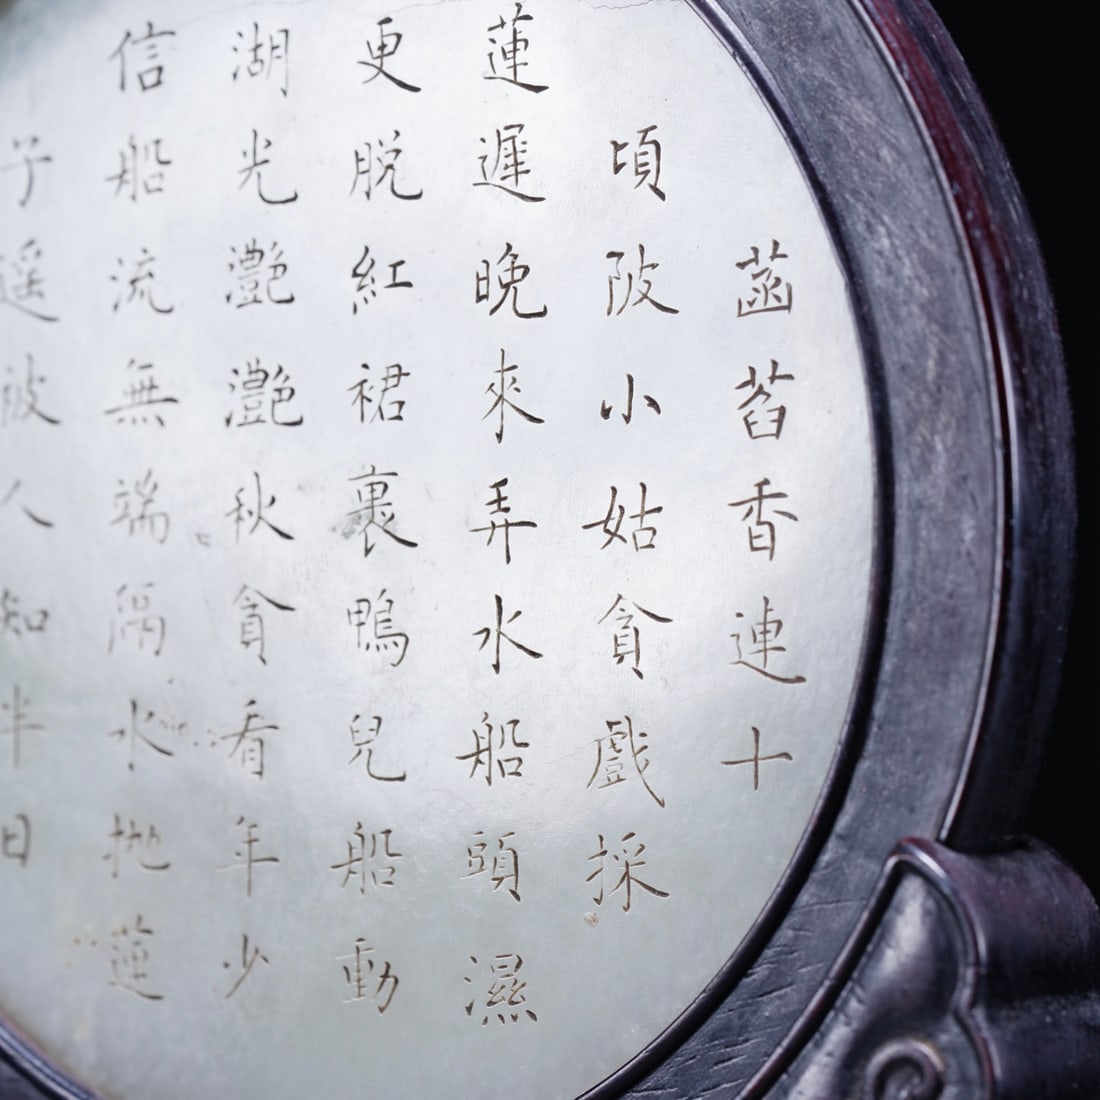 菡萏香連十
頃陂小姑貪戲採
蓮遲晚來弄水船頭濕
更脫紅裙裹鴨兒船動
湖光灧灧秋貪看年少
信船流無端隔水拋蓮
子遥被人知半日